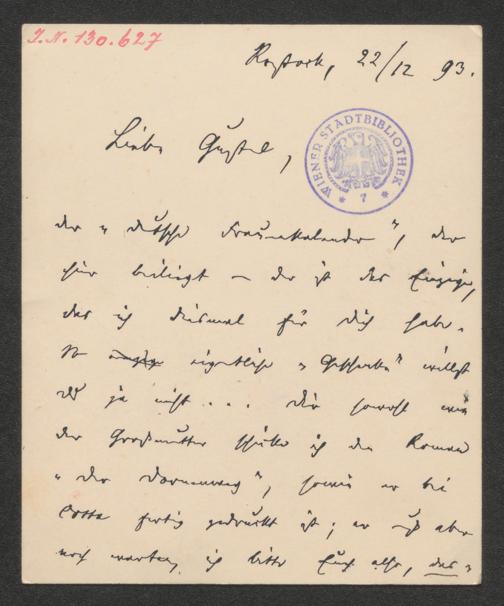 I.N. 130.627
Rostock, 22/12 93.
WIENER STADTBIBLIOTHEK
* 7 *
Liebe Gustel,
der „deutsche Frauenkalender", der
hier beiliegt – der ist das Einzige,
das ich diesmal für Dich habe.
eigentliche „Geschenke" willst
Du ja nicht ... Dir sowohl wie
der Großmutter schicke ich den Roman
„Der Dornenweg", sowie er bei
Cotta fertig gedruckt ist; er muß aber
noch warten, ich bitte Euch also, das-